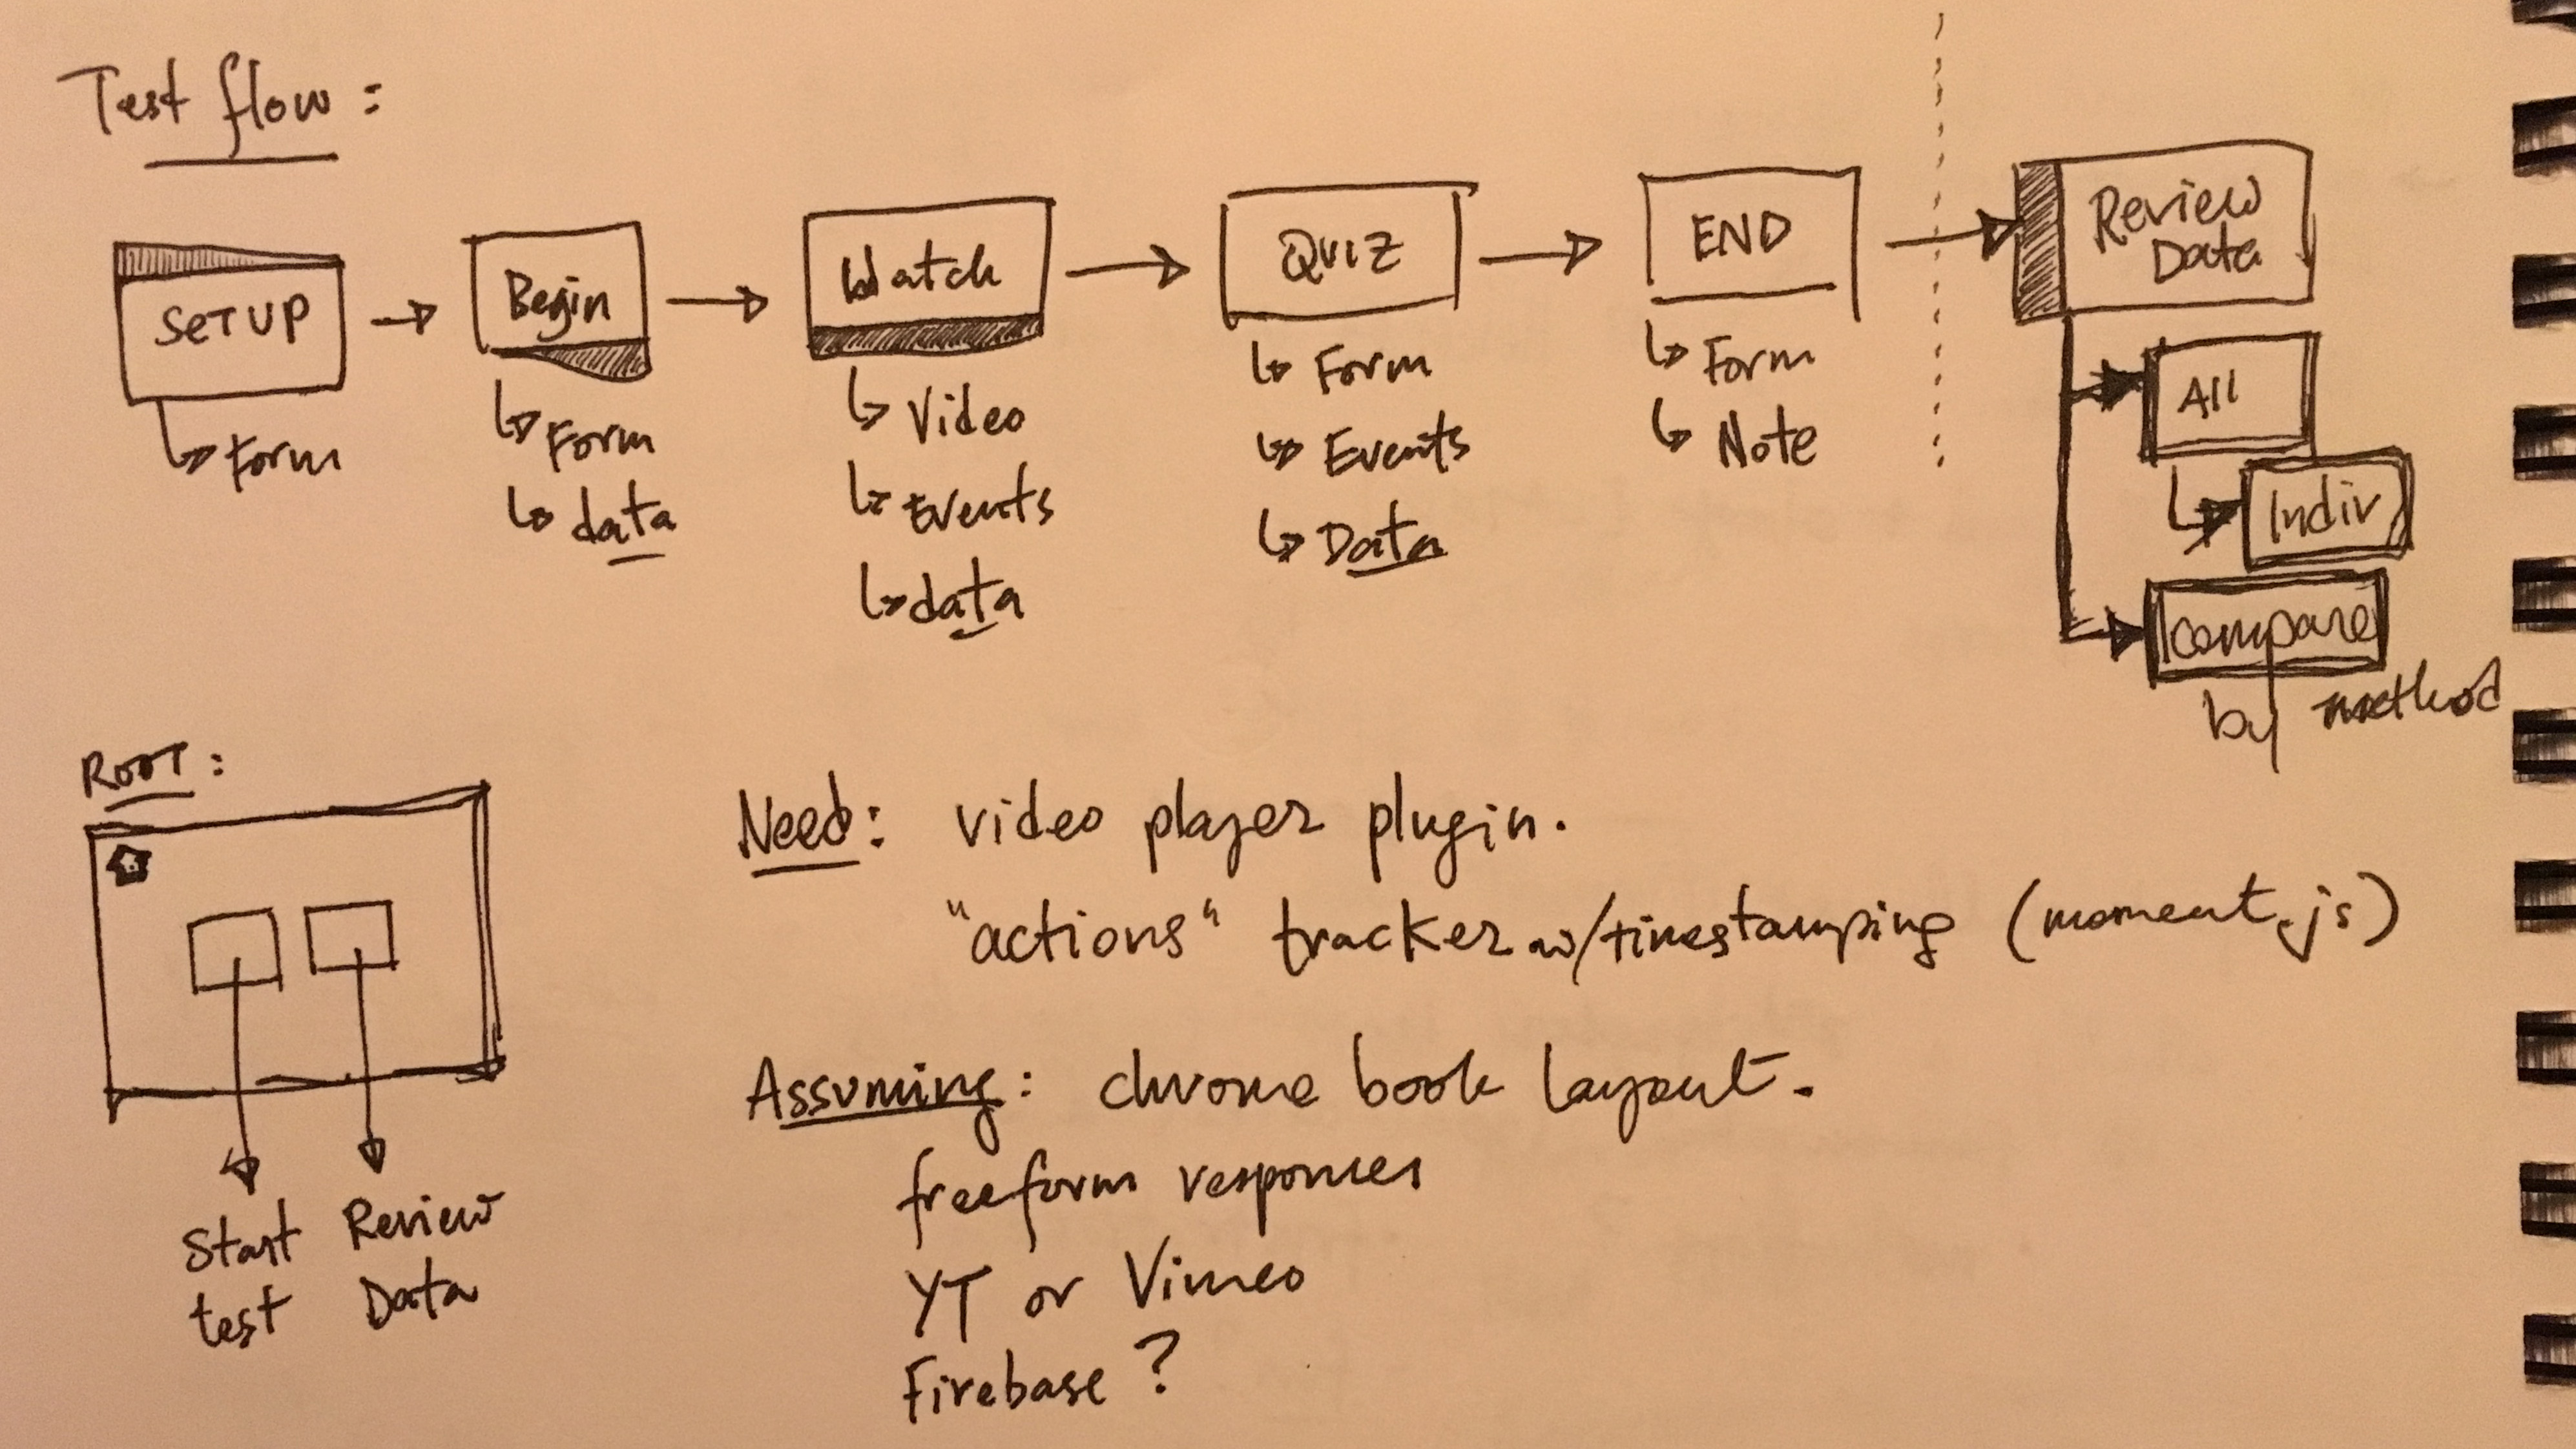 Test flow:
SETUP
↳ Form
Begin
↳ Form
↳ data
Watch
↳ Video
↳ Events
↳ data
QUIZ
↳ Form
↳ Events
↳ Data
END
↳ Form
↳ Note
Review
Data
All
Indiv
compare
by method
ROOT:
Start
test
Review
Data
Need: video player plugin.
"actions" tracker w/timestamping (moment.js)
Assuming: chrome book layout.
freeform responses
YT or Vimeo
Firebase?